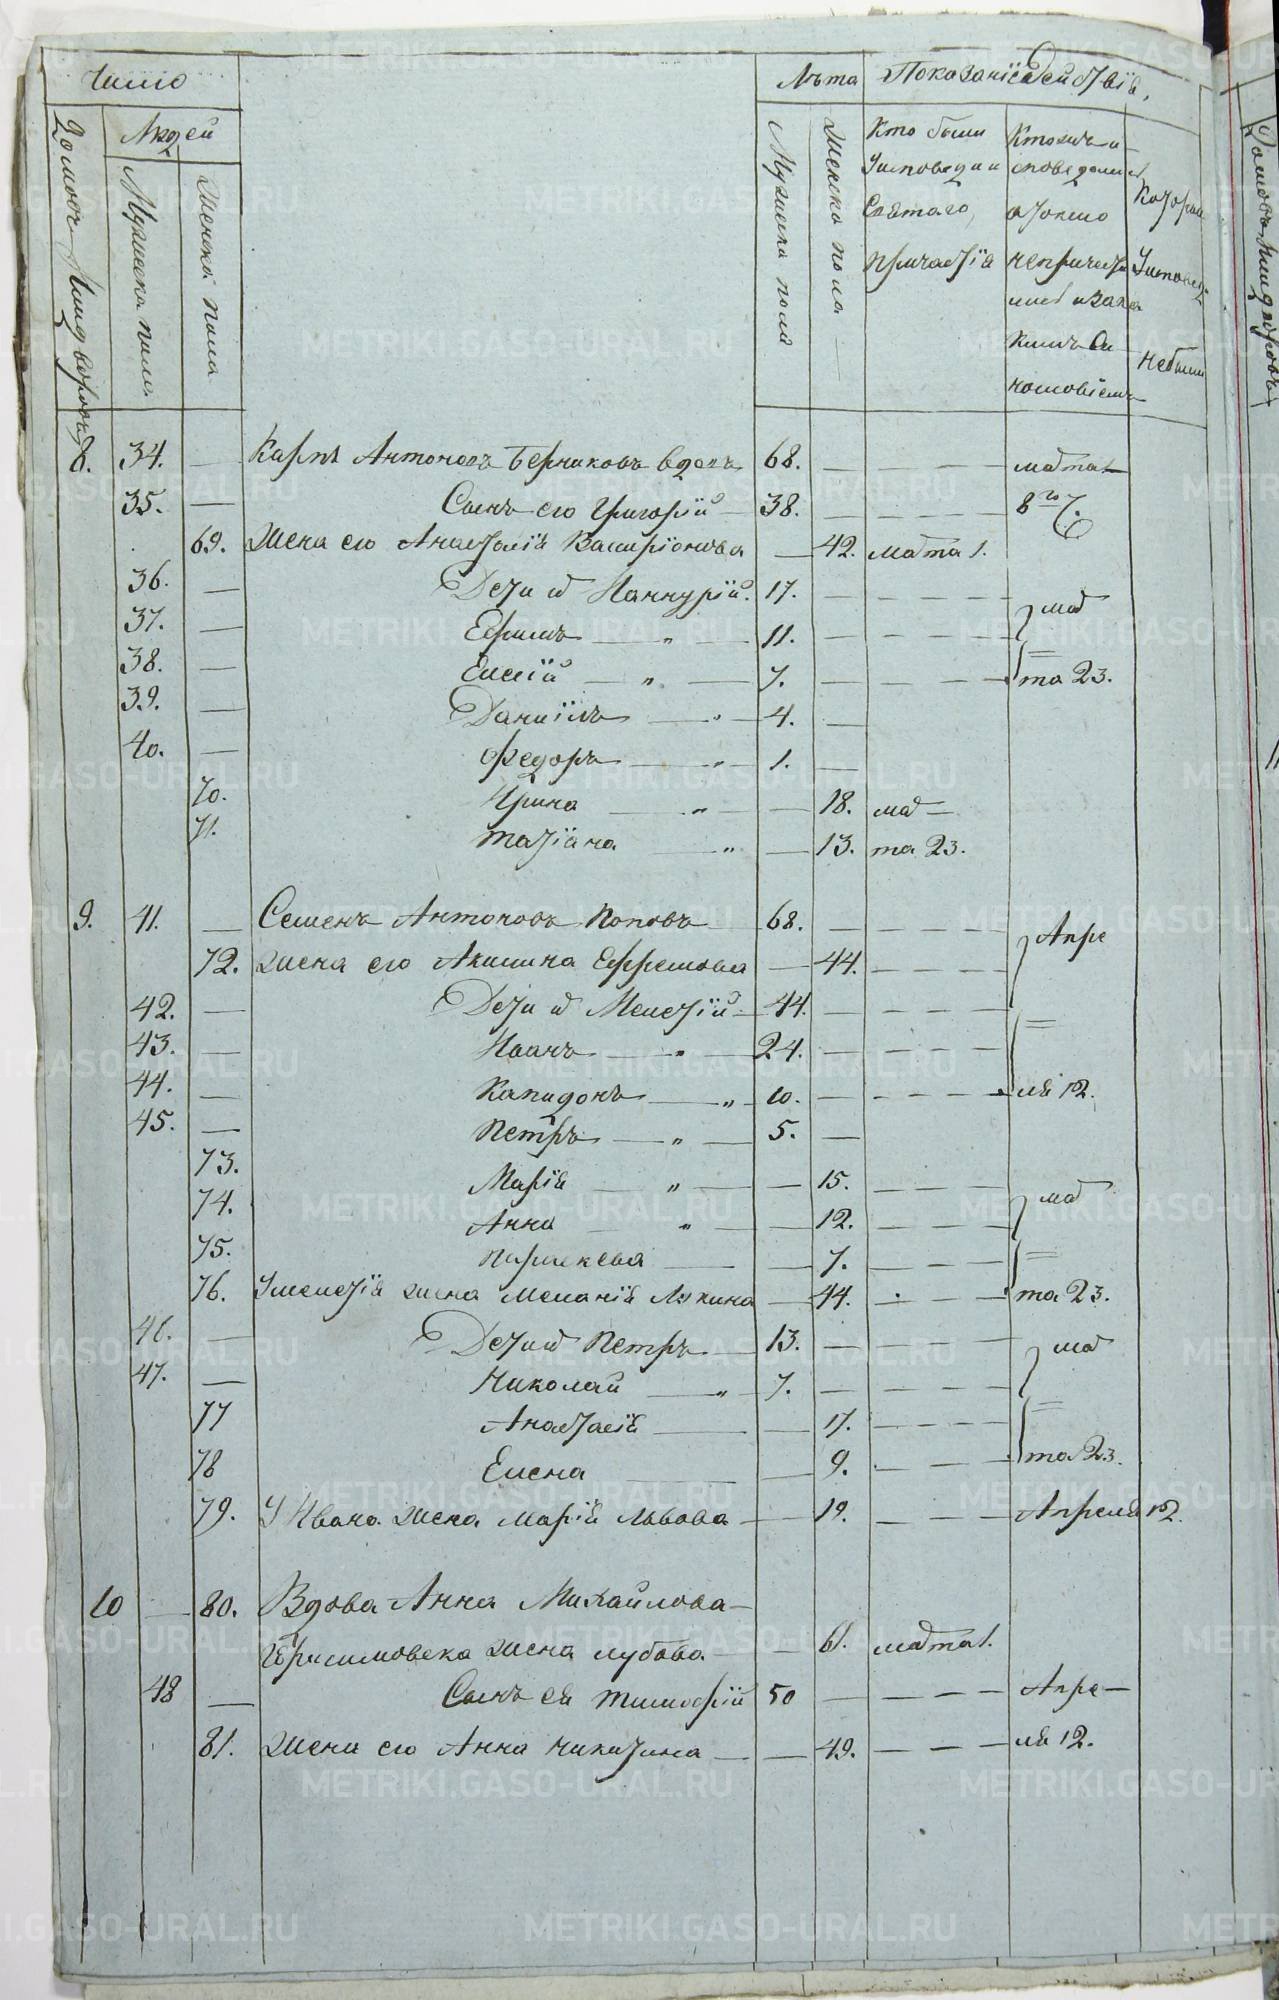 Число
Лѣта Показанїе дѣйствїя.
Людей
Домовъ или дворовъ
Мужеска пола
Женска пола
Мужеска пола
Женска пола
Кто были
Уисповеди и
Святаго
причастїя
Кто изъ и-
споведались
а токмо
непричасти
лись и за ка
кимъ ви
нословїемъ
Которые
Уисповеди
небыли
8. 34. — Карпъ Антоновъ Берниковъ вдовъ 68. — марта
35. — Сынъ его Григорїй 38. — 8го Ч.
69. Жена его Анастасїя — 42. марта 1.
36. — Дети их Маннурїй. 17. — мар
37. — Ефимъ — „ — 11.
38. — Елисїй — „ — 7. — та 23.
39. — Данїилъ — „ — 4. —
40. — Федоръ — „ — 1. —
70. Ирина — „ — 18. мар
71. татїана — „ — 13. та 23.
9. 41. — Семенъ Антоновъ Поповъ 68. — Апре
72. жена его Акилина Ефремова — 44.
42. — Дети их Мелетїй 44.
43. — Иванъ — „ — 24.
44. — Капидонъ — „ 10. — ля 12.
45. — Петръ — „ — 5. —
73. Марїя — „ — 15.
74. Анна — „ — 12. мар
75. параскевья — 7.
76. У мелетїя жена Меланїя Лукина — 44. та 23.
46. — Дети их Петръ 13. — мар
47. — Николай — „ 7.
77 Анастасїя — 17.
78 Елена — 9. та 23.
79. У Ивана жена марїя львова — 19. Апреля 12.
10 — 80. Вдова Анна Михайлова
Герасимовска жена лубова — 61. марта 1.
48 — Сынъ ея тимофїй 50 — Апре—
81. Жена его Анна никитина — 49. ля 12.
METRIKI.GASO-URAL.RU